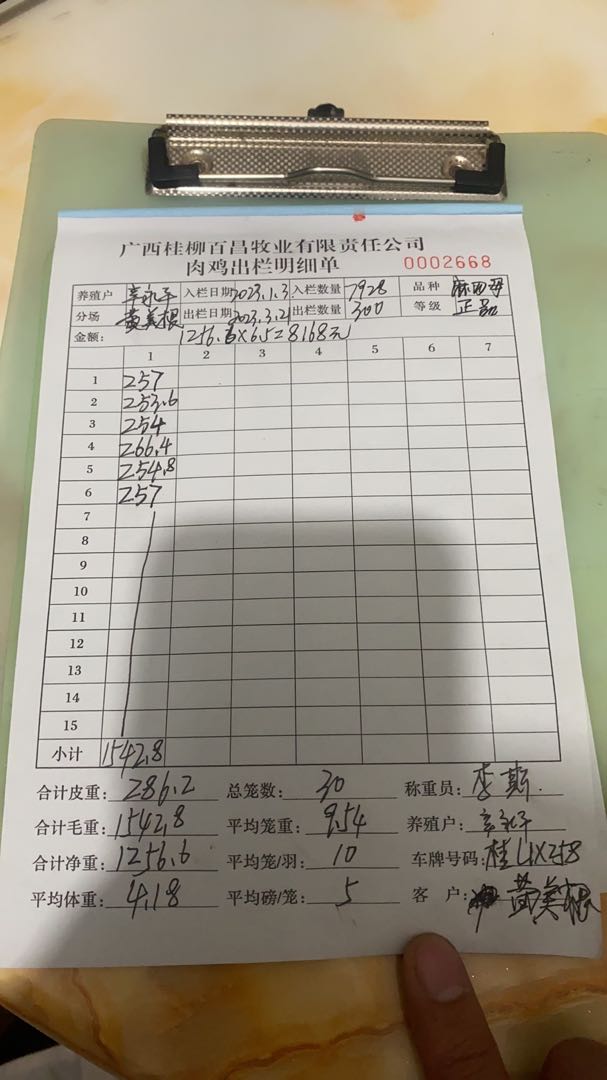 广西桂柳百昌牧业有限责任公司
肉鸡出栏明细单 0002668
养殖户 入栏日期 2023.1.3 入栏数量 7928 品种
分场 黄美根 出栏日期 2023.3.21 出栏数量 300 等级 正品
金额: 1256.6×6.5=8168元
1 2 3 4 5 6 7
1 257
2 253.6
3 254
4 266.4
5 254.8
6 257
7
8
9
10
11
12
13
14
15
小计 1542.8
合计皮重: 286.2 总笼数: 30 称重员: 李斯
合计毛重: 1542.8 平均笼重: 9.54 养殖户:
合计净重: 1256.6 平均笼/羽: 10 车牌号码: 桂
平均体重: 4.18 平均磅/笼: 5 客户: 黄美根